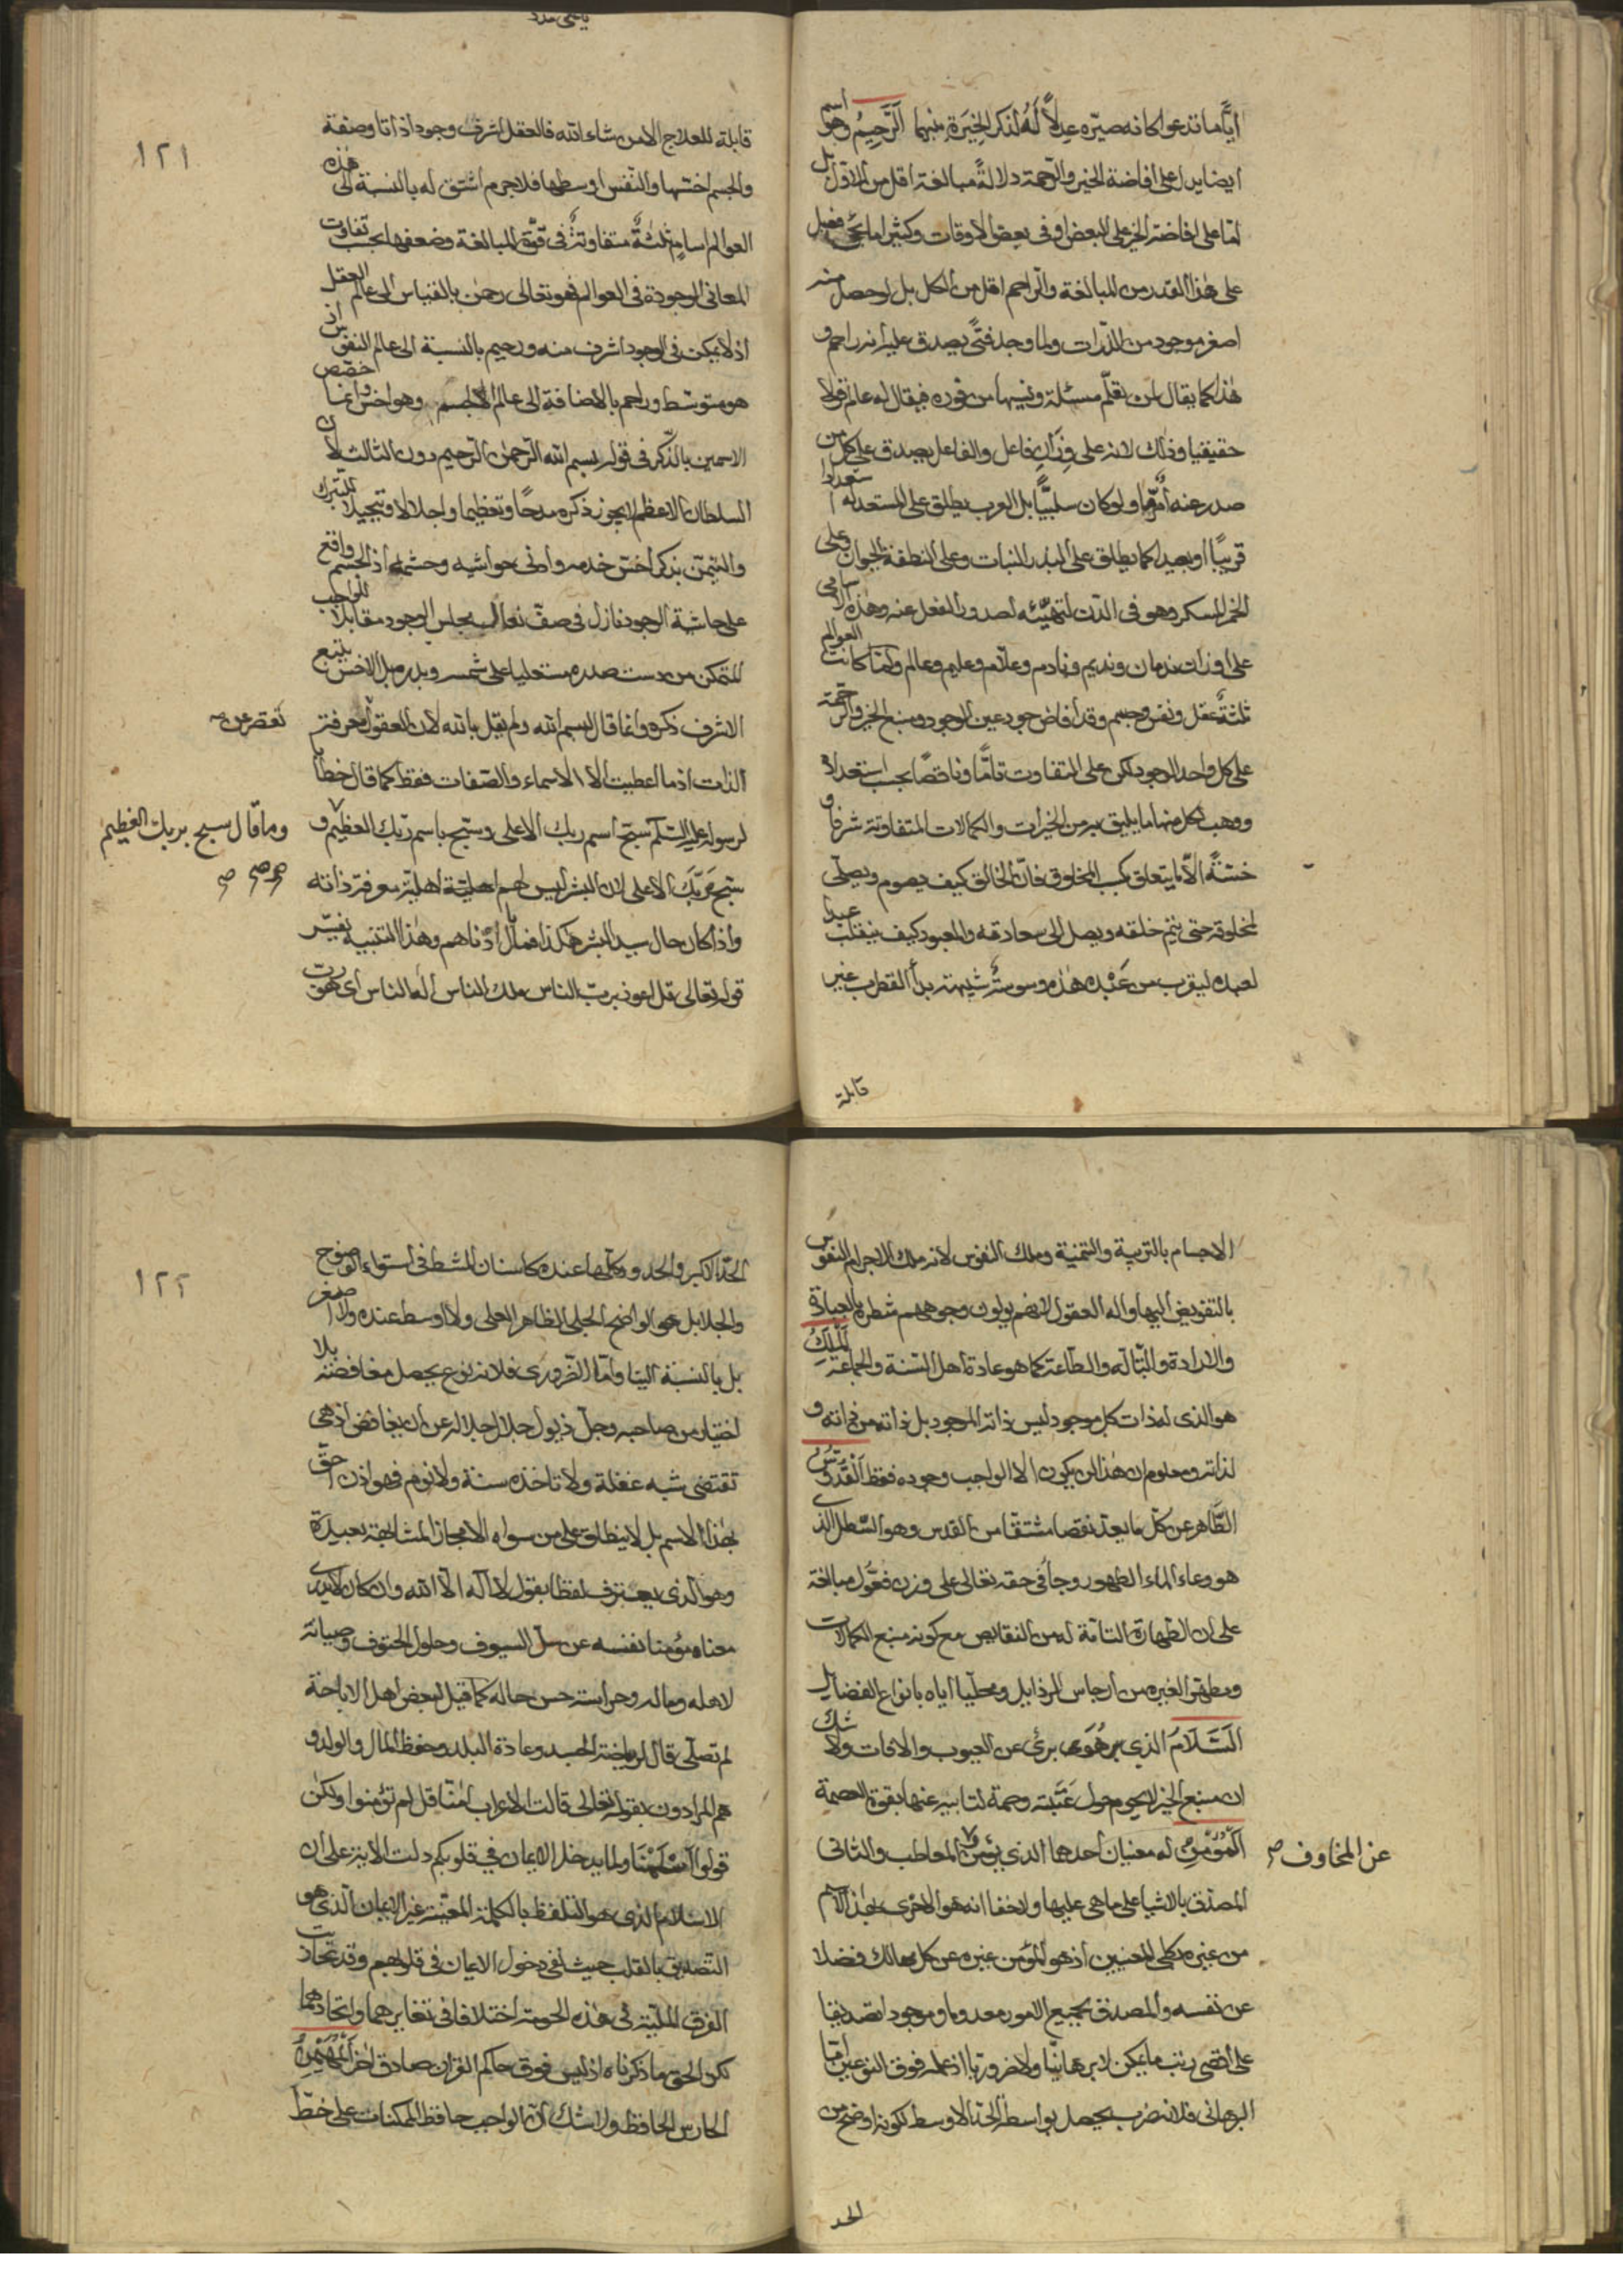 أيّاما تدعوا كانه صيّره عدلاً له لذكر الخيرة منهما الرَّحِيمُ وهو اسم
ايضا يدل على افاضة الخير والرحمة دلالةً مبالغة اقل من الاوّل بل
امّا على افاضة الخير على البعض او في بعض الاوقات وكثيرا ما يجئ فعيل
على هذا القدر من المبالغة والراحم اقل من الكل بل لو حصل منه
اصغر موجود من الذرات ولما وجد فتى يصدق عليه انه راحم و
هذا كما يقال لمن تعلّم مسئلة ونسيها من فوره فيقال له عالم قولا
حقيقيا وذلك لانه على وزان فاعل والفاعل يصدق على كل من
صدر عنه أمرٌ مّا ولو كان سلبيًّا بل العرب يطلق على المستعد له استعدادا
قريبًا او بعيدا كما يطلق على البذر النبات وعلى النطفة الحيوان وعلى
الخمر المسكر وهو في الدّن لتهيّئه لصدور الفعل عنه وهذه الاسامي
على اوزان ندمان ونديم ونادم وعلّام وعليم وعالم ولمّا كانت العوالم
ثلثةٌ عقل ونفس وجسم وقد أفاض جود عين الوجود ومنبع الخير والرحمة
على كل واحد الوجود لكن على التفاوت تامًّا وناقصًا بحسب استعداد
ووهب لكل منها ما يليق به من الخيرات والكمالات المتفاوتة شرفا و
خسّةً الّا ما يتعلق بكسب المخلوق فانّ الخالق كيف يصوم ويصلّى
لمخلوقه حتى يتم خلقه ويصل الى سعادته والمعبود كيف ينقلب عبدا
لعبده ليقرب من عَبْده هذه وسوسةٌ شيطانية بدأ القطرب غير
قابلة
١٢١
قابلة للعلاج الا من شاء الله فالعقل اشرف وجودا ذاتا وصفة
والجسم اخسّها والنّفس اوسطها فلا جرم اشتق له بالنسبة الى هذه
العوالم اسامٍ ثلثةٌ متفاوتةٌ في قوّة المبالغة وضعفها بحسب تفاوت
المعانى الموجودة في العوالم فهو تعالى رحمن بالقياس الى عالم العقل
اذ لا يمكن في الوجود اشرف منه ورحيم بالنسبة الى عالم النفوس اذ
هو متوسّط وراحم بالاضافة الى عالم الاجسم وهو اخسّ وانما اخصّص
الاسمين بالذّكر في قوله بسم الله الرّحمن الرّحيم دون الثالث لانّ
السلطان الاعظم لا يجوز ذكره مدحًا وتعظيما واجلالا وتبجيلا للتبرك
والتيمّن بذكر اخسّ خدمه وادنى حواشيه وحشمه اذ الجسم واقع
على حاشية الوجود نازل في صفّ نعال مجلس الوجود مقابلا للواجب
المتمكن من دست صدره مستعليا على شمسه وبدره بل الاخسّ يتبع
الاشرف ذكره وانما قال بسم الله ولم يقل بالله لان العقول معرفة
تقصر عن صح
الذات اذ ما اعطيت الا الاسماء والصّفات فقط كما قال خطابا
لرسوله عليه السّلم سبّح اسم ربك الاعلى وسبّح باسم ربك العظيم و
وما قال سبح بربك العظيم
سبّح ربّك الاعلى لان البشر ليس لهم اهليّة معرفة ذاته
واذا كان حال سيد البشر هكذا فما بال ادناهم وهذا التنبيه تفسير
قوله تعالى قل اعوذ برب الناس ملك الناس اله الناس اى هو رب
الاجسام بالتربية والتنمية وملك النفوس لانه ملك الاجرام النفوس
بالتفويض اليها واله العقول لانهم يولون وجوههم شطره بالعبادة
والارادة والتّاله والطّاعة كما هو عادة اهل السّنة والجماعة اَلمَلِكُ
هو الذى له ذات كل موجود ليس ذاته لموجود بل ذاته من ذاته و
لذاته ومعلوم ان هذا لن يكون الا الواجب وجوده فقط اَلقُدُّوسُ
الطّاهر عن كلّ ما يعدّ نقصا مشتقا من القدس وهو السّطل الذى
هو وعاء الماء الطهور وجاء في حقه تعالى على وزن فعّول مبالغة
على ان الطّهارة التامّة له من النقايص مع كونه منبع الكمالات
ومطهّرا لغيره من ارجاس الرذايل ومحليا اياه بانواع الفضايل
السَّلَامُ الذي هو برئ عن العيوب والافات ولا شك
ان منبع الخير لا يحوم حول عَتَبَته وصمة لتابيه عنها بقوة العصمة
اَلمُؤمِنُ له معنيان احدهما الذي يؤمن المعاطب والثانى
عن المخاوف صح
المصدّق بالاشيا على ما هى عليها ولا خفا انه هو الاحرى بهذا الاسم
من غيره بكلى المعنيين اذ هو المؤمن غيره عن كل مهالك فضلا
عن نفسه والمصدق بجميع الامور معدوما وموجودا تصديقا
على اقصى رتب ما يمكن لا برهانيّا ولا ضروريا اذ علمه فوق النوعين امّا
البرهانى فلانه ضرب يحصل بواسطة الحدّ الاوسط لكونه اوضح من
الحد
١٢٢
الحدّ الاكبر والحدود كلّها عنده كاسنان المشط في استواء الوضوح
والجلا بل هو الواضح الجلى الظاهر العلى ولا اوسط عنده ولا اصغر
بل بالنسبة الينا وامّا الضرورى فلانه نوع يحصل مغافضة بلا
اختيار من صاحبه وجلّ ذيول جلال اجلاله عن ان يغافض اذ هى
تقتضى شبه غفلة ولا تاخذه سنة ولا نوم فهو اذن احقّ
بهذا الاسم بل لا ينطلق على من سواه الا مجازا لمشابهة بعيدة
وهو الذى يعترف لفظا بقول لا اله الا الله وان كان لا يدرى
معناه مؤمنا نفسه عن سلّ السيوف وحلول الحتوف وصيانة
لاهله وماله وحراسة حسن حاله كما قيل لبعض اهل الاباحة
لم تصلّى قال لرياضة الجسد وعادة البلد وحفظ المال والولد و
هم المرادون بقوله تعالى قالت الاعراب امنّا قل لم تؤمنوا ولكن
قولوا اَسْلَمْنَا ولما يدخل الايمان في قلوبكم دلت الاية على ان
الاسلام الذى هو التلفظ بالكلمة المعيّنة غير الايمان الذى هو
التّصديق بالقلب حيث نفى دخول الايمان في قلوبهم وقد تحازبت
الفرق المليّة في هذه الحومة اختلافا في تغايرهما واتحادهما
لكن الحق ما ذكرناه اذ ليس فوق حاكم القران صادق اخر اَلمُهَيْمِنُ
الحارس الحافظ ولا شك انّ الواجب حافظ الممكنات على خطّ